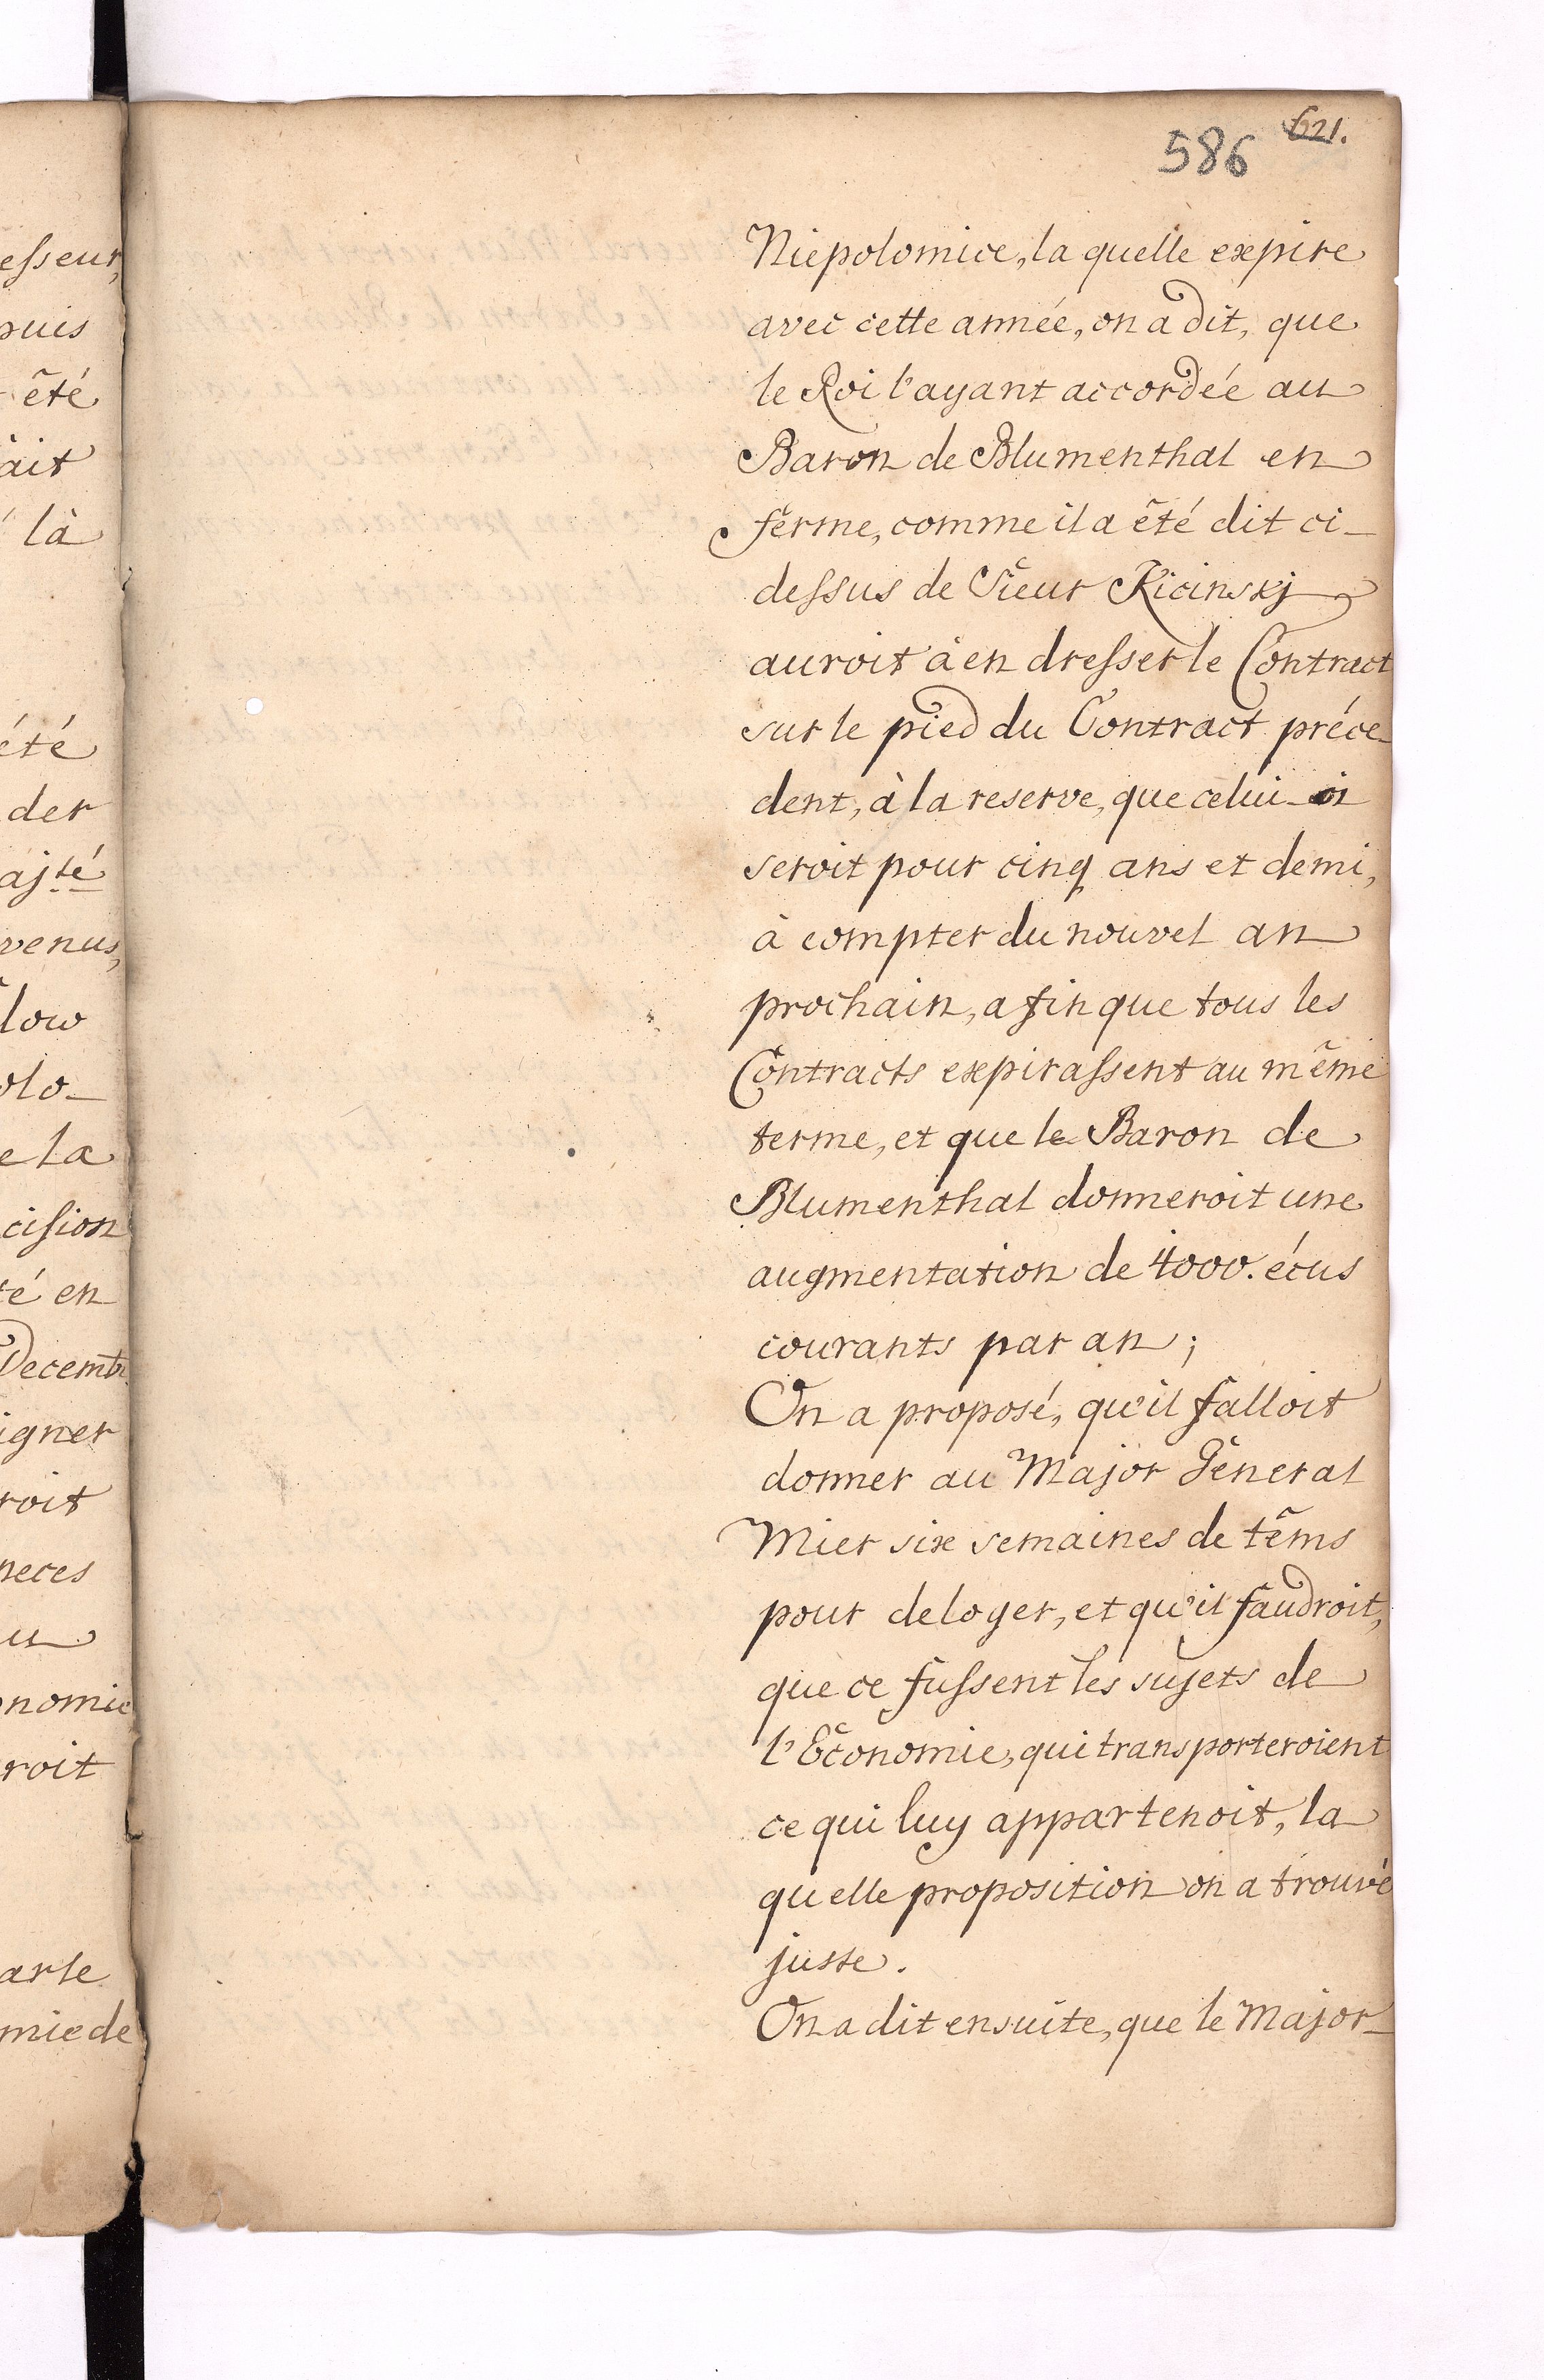 esseur,
puis
été
ait
là
été
der
ajté
venus,
low
olo-
e la
cision
té en
Decembr.
igner
roit
neces
u
onomie
roit
arle
mie de
621.
586
Niepolomice, la quelle expire
avec cette année, on a dit, que
le Roi l'ayant accordée au
Baron de Blumenthal en
ferme, comme il a êté dit ci-
dessus de Sieur Kicinskj
auroit à en dresser le Contract
sur le pied du Contract préce-
dent, à la reserve, que celui-ci
seroit pour cinq ans et demi,
à compter du nouvel an
prochain, afin que tous les
Contracts expirassent au même
terme, et que le Baron de
Blumenthal donneroit une
augmentation de 4000. écus
courants par an;
On a proposé, qu'il falloit
donner au Major Géneral
Mier six semaines de têms
pour deloger, et qu'il faudroit,
que ce fussent les sujets de
l'Economie, qui transporteroient
ce qui luy appartenoit, la
quelle proposition on a trouvé
juste.
On a dit ensuite, que le Major-